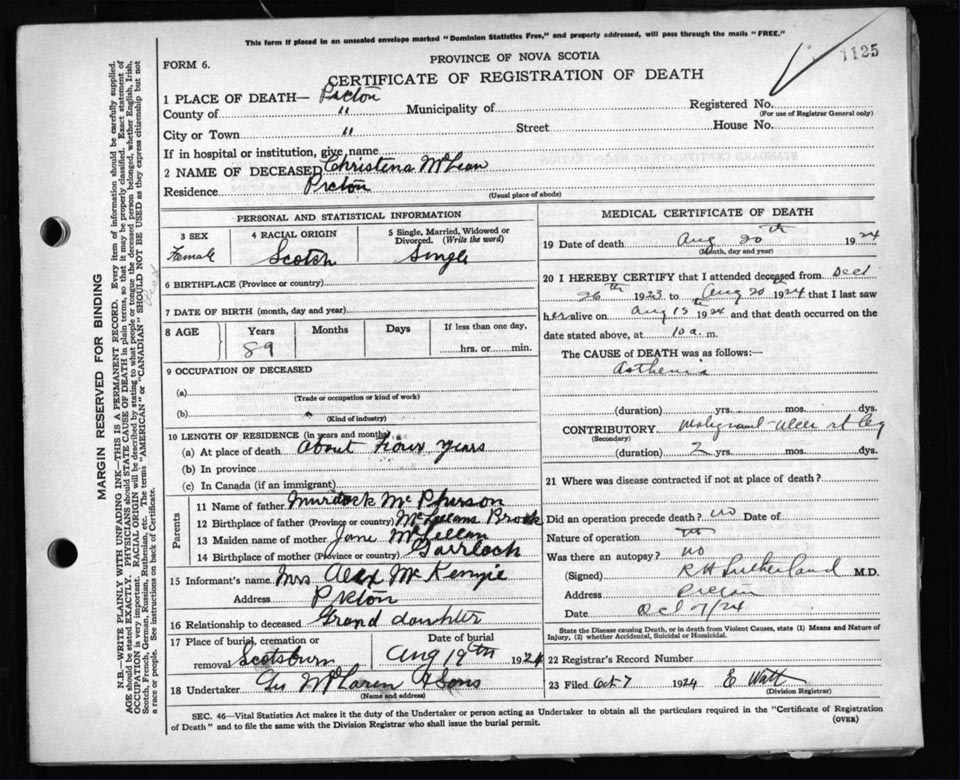 This form if placed in an unsealed envelope marked "Dominion Statistics Free," and properly addressed, will pass through the mails "FREE."
1125
FORM 6.
PROVINCE OF NOVA SCOTIA
CERTIFICATE OF REGISTRATION OF DEATH
1 PLACE OF DEATH— Pictou
County of " Municipality of Registered No.
(For use of Registrar General only)
City or Town " Street House No.
If in hospital or institution, give name
2 NAME OF DECEASED Christena McLean
Residence Pictou
(Usual place of abode)
PERSONAL AND STATISTICAL INFORMATION
3 SEX 4 RACIAL ORIGIN 5 Single, Married, Widowed or Divorced. (Write the word)
Female Scotch Single
6 BIRTHPLACE (Province or country)
7 DATE OF BIRTH (month, day and year)
8 AGE Years Months Days If less than one day,
89 hrs. or min.
9 OCCUPATION OF DECEASED
(a)
(Trade or occupation or kind of work)
(b)
(Kind of industry)
10 LENGTH OF RESIDENCE (in years and months)
(a) At place of death About Four years
(b) In province
(c) In Canada (if an immigrant)
Parents
11 Name of father Murdock McPherson
12 Birthplace of father (Province or country) Brook
13 Maiden name of mother Jane McLellan
14 Birthplace of mother (Province or country) Gairloch
15 Informant's name Mrs Alex McKenzie
Address Pictou
16 Relationship to deceased Grand daughter
17 Place of burial, cremation or removal Scotsburn Date of burial Aug 19th 1924
18 Undertaker Geo McLaren & Sons
(Name and address)
MEDICAL CERTIFICATE OF DEATH
19 Date of death Aug 20th 1924
(Month, day and year)
20 I HEREBY CERTIFY that I attended deceased from Dec
26th 1923 to Aug 20th 1924 that I last saw
her alive on Aug 15 1924 and that death occurred on the
date stated above, at 10 a. m.
The CAUSE of DEATH was as follows:—
Asthenia
(duration) yrs. mos. dys.
CONTRIBUTORY Malignant ulcer rt leg
(Secondary)
(duration) 2 yrs. mos. dys.
21 Where was disease contracted if not at place of death?
Did an operation precede death? no Date of
Nature of operation
Was there an autopsy? no
(Signed) R H Sutherland M.D.
Address Pictou
Date Oct 7/24
State the Disease causing Death, or in death from Violent Causes, state (1) Means and Nature of
Injury, (2) whether Accidental, Suicidal or Homicidal.
22 Registrar's Record Number
23 Filed Oct 7 1924 E Watt
(Division Registrar)
SEC. 46—Vital Statistics Act makes it the duty of the Undertaker or person acting as Undertaker to obtain all the particulars required in the "Certificate of Registration
of Death" and to file the same with the Division Registrar who shall issue the burial permit.
(OVER)
MARGIN RESERVED FOR BINDING
N.B.—WRITE PLAINLY WITH UNFADING INK—THIS IS A PERMANENT RECORD. Every item of information should be carefully supplied.
AGE should be stated EXACTLY. PHYSICIANS should STATE CAUSE OF DEATH in plain terms, so that it may be properly classified. Exact statement of
OCCUPATION is very important. RACIAL ORIGIN will be described by stating to what people or tongue the deceased person belonged, whether English, Irish,
Scotch, French, German, Russian, Ruthenian, etc. The terms "AMERICAN" or "CANADIAN" SHOULD NOT BE USED as they express citizenship but not
a race or people. See instructions on back of Certificate.